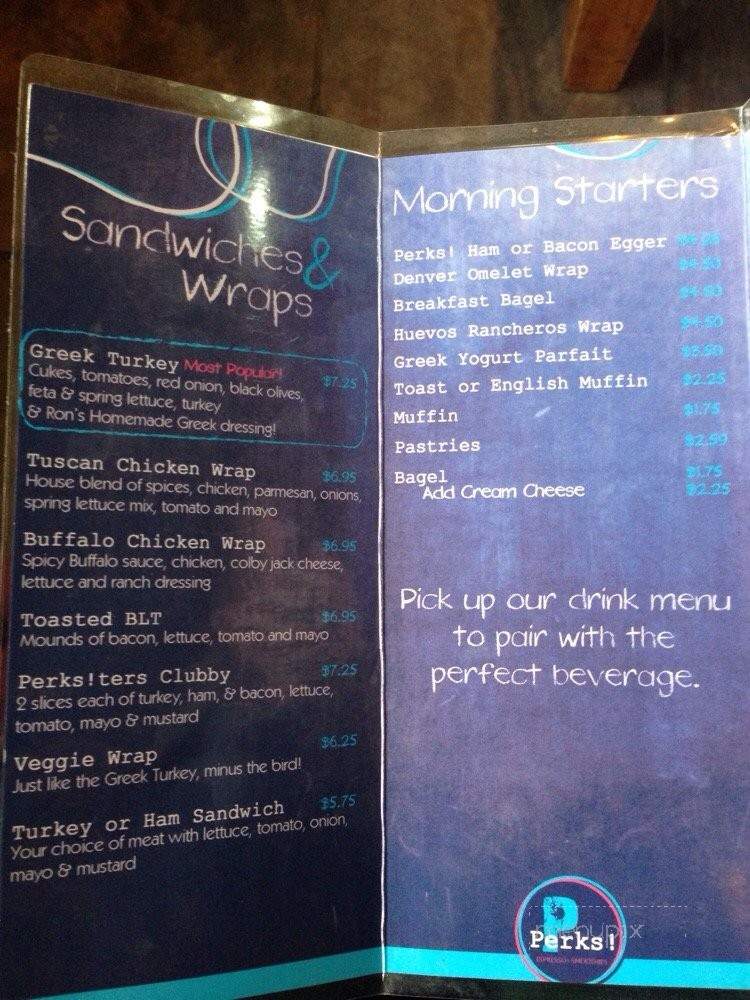 Sandwiches &
Wraps
Greek Turkey Most Popular!
$7.25
Cukes, tomatoes, red onion, black olives,
feta & spring lettuce, turkey
& Ron's Homemade Greek dressing!
Tuscan Chicken Wrap $6.95
House blend of spices, chicken, parmesan, onions,
spring lettuce mix, tomato and mayo
Buffalo Chicken Wrap $6.95
Spicy Buffalo sauce, chicken, colby jack cheese,
lettuce and ranch dressing
Toasted BLT $6.95
Mounds of bacon, lettuce, tomato and mayo
Perks!ters Clubby $7.25
2 slices each of turkey, ham, & bacon, lettuce,
tomato, mayo & mustard
Veggie Wrap $6.25
Just like the Greek Turkey, minus the bird!
Turkey or Ham Sandwich $5.75
Your choice of meat with lettuce, tomato, onion,
mayo & mustard
Morning Starters
Perks! Ham or Bacon Egger
Denver Omelet Wrap $4.50
Breakfast Bagel $4.50
Huevos Rancheros Wrap $4.50
Greek Yogurt Parfait $3.50
Toast or English Muffin $2.25
Muffin $1.75
Pastries $2.59
Bagel $1.75
Add Cream Cheese $2.25
Pick up our drink menu
to pair with the
perfect beverage.
P
menupix
Perks!
ESPRESSO & SMOOTHIES